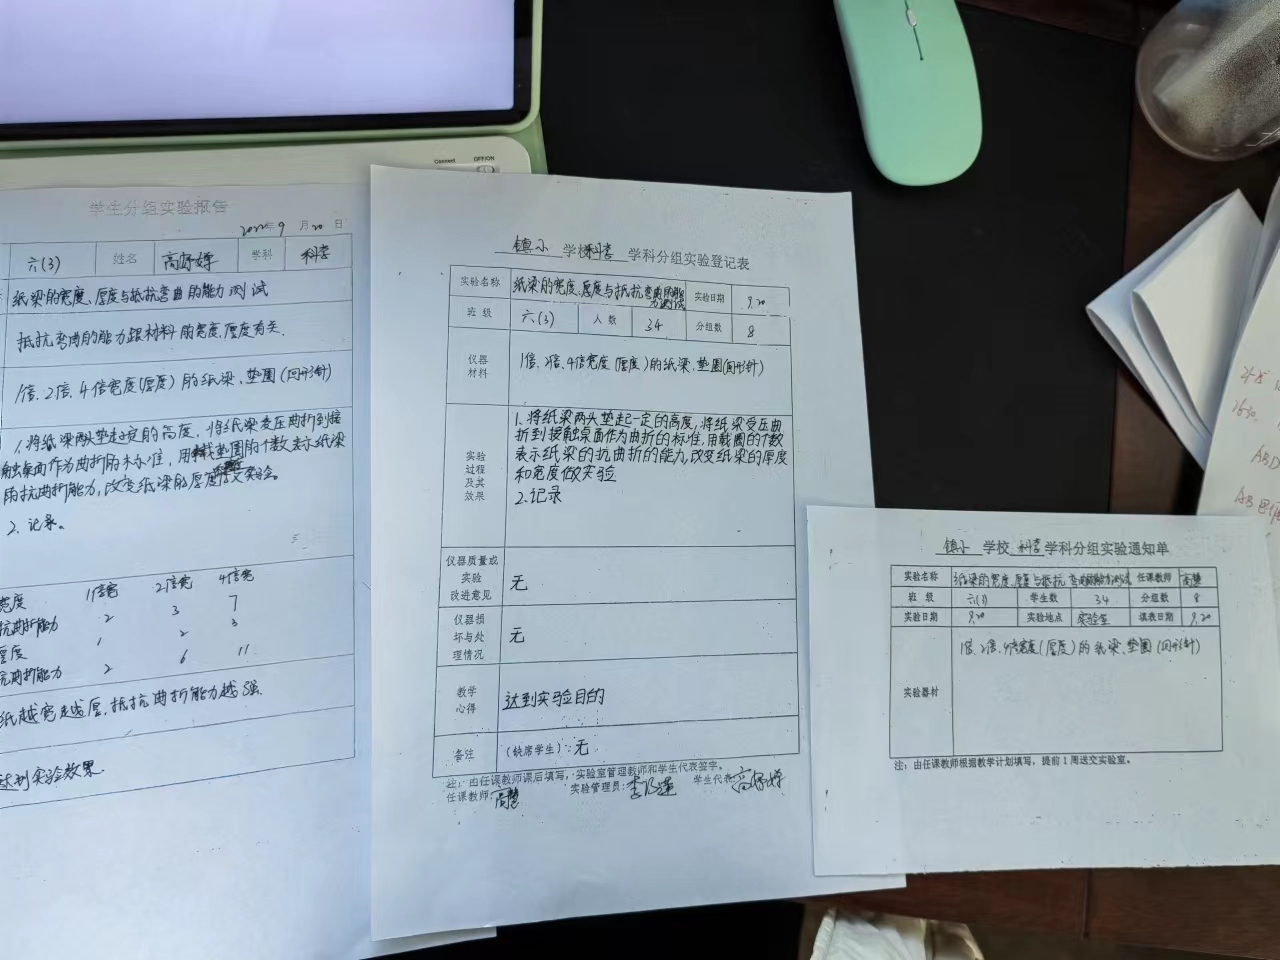 Connect OPTION
学生分组实验报告
2022年9月20日
六(3) 姓名 高妤婷 学科 科学
纸梁的宽度、厚度与抵抗弯曲的能力测试
抵抗弯曲的能力跟材料的宽度、厚度有关.
1倍、2倍、4倍宽度(厚度)的纸梁、垫圈(回形针)
1.将纸梁两头垫起一定的高度,将纸梁受压曲折到接
触桌面作为曲折的标准,用垫圈的个数表示纸梁
的抗曲折能力,改变纸梁的厚度 实验。
2.记录。
宽度 1倍宽 2倍宽 4倍宽
抗曲折能力 2 3 7
厚度 1 2 3
抗曲折能力 2 6 11
纸越宽越厚,抵抗曲折能力越强.
达到实验效果.
镇小 学校 科学 学科分组实验登记表
实验名称 纸梁的宽度、厚度与抵抗弯曲的能力测试 实验日期 9.20
班级 六(3) 人数 34 分组数 8
仪器材料 1倍、2倍、4倍宽度(厚度)的纸梁、垫圈(回形针)
实验过程及其效果
1.将纸梁两头垫起一定的高度,将纸梁受压曲
折到接触桌面作为曲折的标准,用载圈的个数
表示纸梁的抗曲折的能力,改变纸梁的厚度
和宽度做实验
2.记录
仪器质量或实验改进意见 无
仪器损坏与处理情况 无
教学心得 达到实验目的
备注 (缺席学生):无
注:由任课教师课后填写,实验室管理教师和学生代表签字。
任课教师:高慧 实验管理员:李乃莲 学生代表:高妤婷
镇小 学校 科学 学科分组实验通知单
实验名称 纸梁的宽度、厚度与抵抗弯曲的能力测试 任课教师 高慧
班级 六(3) 学生数 34 分组数 8
实验日期 9.20 实验地点 实验室 填表日期 9.20
实验器材 1倍、2倍、4倍宽度(厚度)的纸梁、垫圈(回形针)
注:由任课教师根据教学计划填写,提前1周送交实验室。
ABD